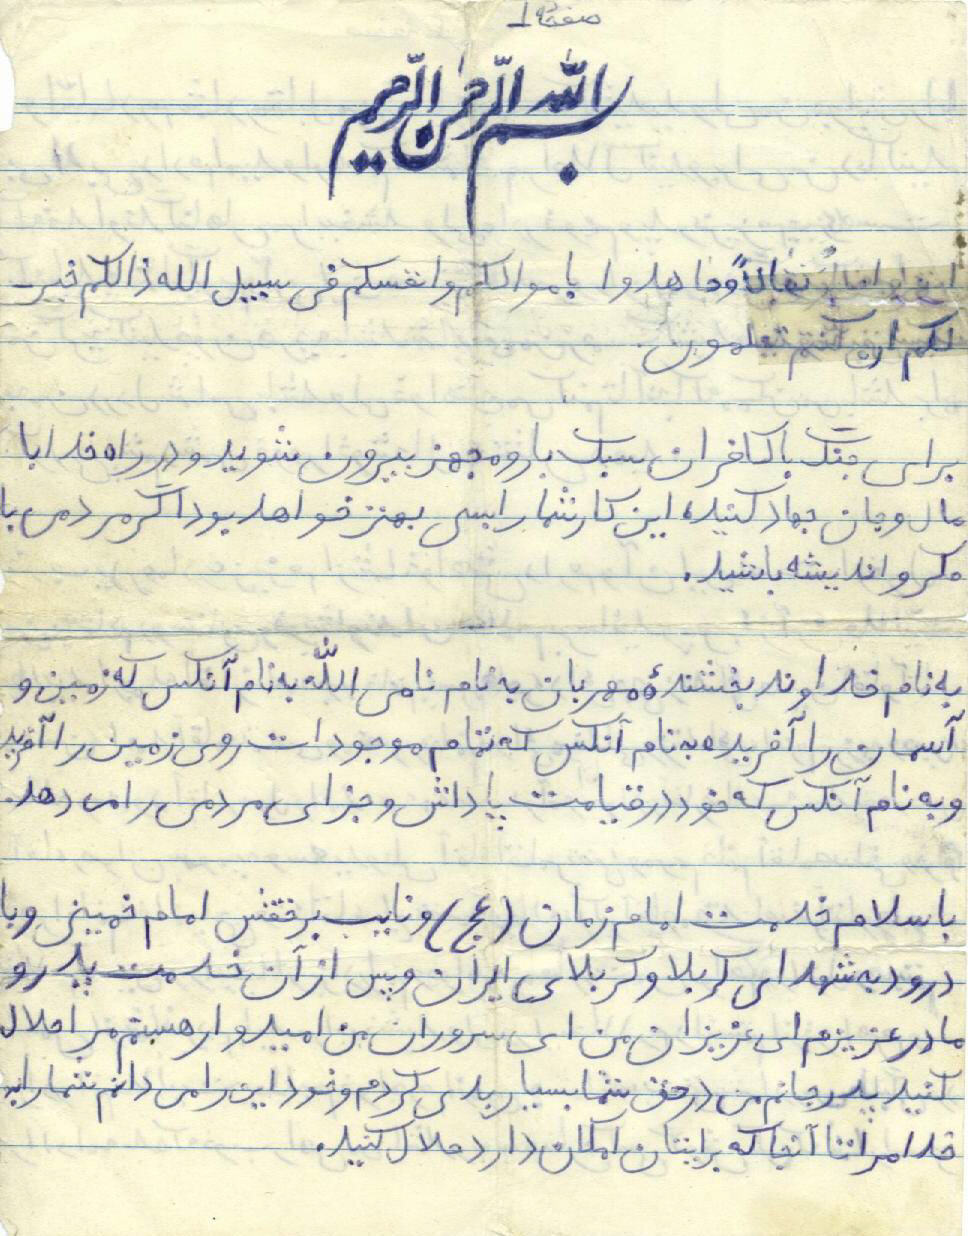 صفحه 1
بسم الله الرحمن الرحیم
انفروا خفافاً وثقالاً وجاهدوا باموالکم وانفسکم فی سبیل الله ذالکم خیر
لکم ان کنتم تعلمون.
برای جنگ با کافران سبک بار و مجهز بیرون شوید و در راه خدا با
مال و جان جهاد کنید، این کار شما را بسی بهتر خواهد بود اگر مردمی با
فکر و اندیشه باشید.
به نام خداوند بخشندهٔ مهربان به نام نامی الله به نام آنکس که زمین و
آسمان را آفریده به نام آنکس که تمام موجودات روی زمین را آفرید
و به نام آنکس که خود در قیامت پاداش و جزای مردمی را می دهد.
با سلام خدمت امام زمان (عج) و نایب برحقش امام خمینی و با
درود به شهدای کربلا و کربلای ایران و پس از آن خدمت پدر و
مادر عزیزم ای عزیزان من ای سروران من امیدوار هستم مرا حلال
کنید پدر جانم من در حق شما بسیار بدی کردم و خود این را می دانم شما را به
خدا مرا تا آنجا که برایتان امکان دارد حلال کنید.